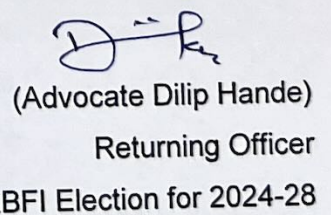 (Advocate Dilip Hande)
Returning Officer
BFI Election for 2024-28